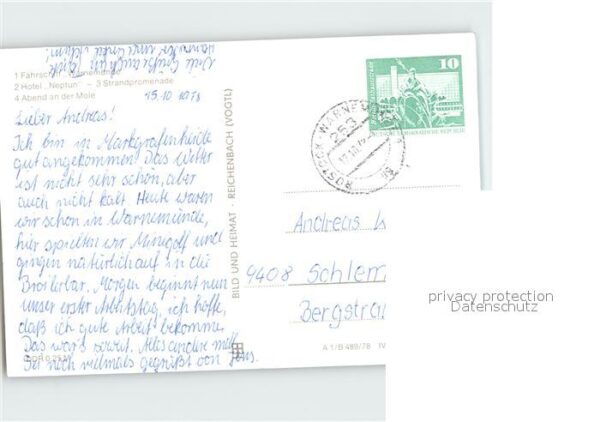 Viele Grüße auch an Dirk
1 Fahrschiff „Warnemünde“
2 Hotel „Neptun“ – 3 Strandpromenade
4 Abend an der Mole
15.10.1978
Lieber Andreas!
Ich bin in Markgrafenheide
gut angekommen. Das Wetter
ist nicht sehr schön, aber
auch nicht kalt. Heute waren
wir schon in Warnemünde,
hier spielten wir Minigolf und
gingen natürlich auf in die
Broilerbar. Morgen beginnt nun
unser erster Arbeitstag, ich hoffe,
daß ich gute Arbeit bekomme.
Das war's soweit. Alles andere
Sei noch vielmals gegrüßt von Jens.
BILD UND HEIMAT · REICHENBACH (VOGTL)
A 1/B 489/78 IV
10
DEUTSCHE DEMOKRATISCHE REPUBLIK
ROSTOCK-WARNEMÜNDE
253
Andreas
9408 Schlem
Bergstra
privacy protection
Datenschutz